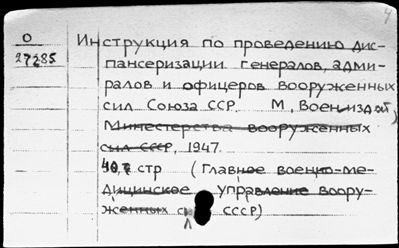 О
27285
Инструкция по проведению дис-
пансеризации генералов, адми-
ралов и офицеров вооруженных
сил Союза ССР. М, Воениздат,
Министерства вооруженных
сил СССР, 1947.
стр (Главное военно-ме-
дицинское управление воору-
женных СССР)